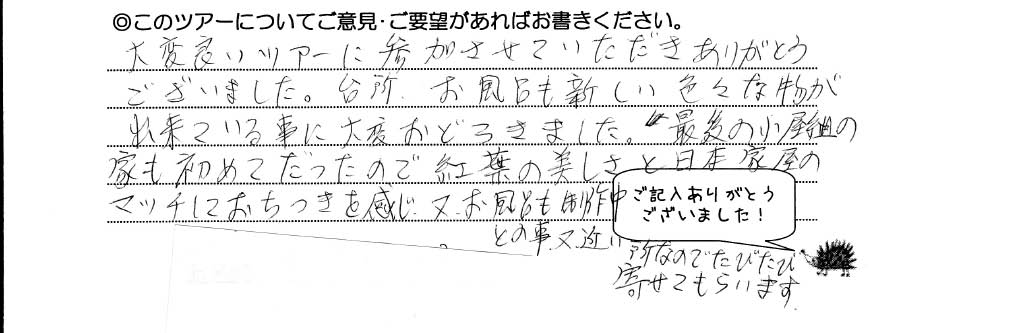 ◎このツアーについてご意見・ご要望があればお書きください。
大変良いツアーに参加させていただきありがとう
ございました。台所、お風呂も新しい色々な物が
出来ている事に大変おどろきました。最後の小屋組の
家も初めてだったので紅葉の美しさと日本家屋の
マッチしておちつきを感じ、又、お風呂も制作中
との事、又、近い
所なのでたびたび
寄せてもらいます。
ご記入ありがとう
ございました！